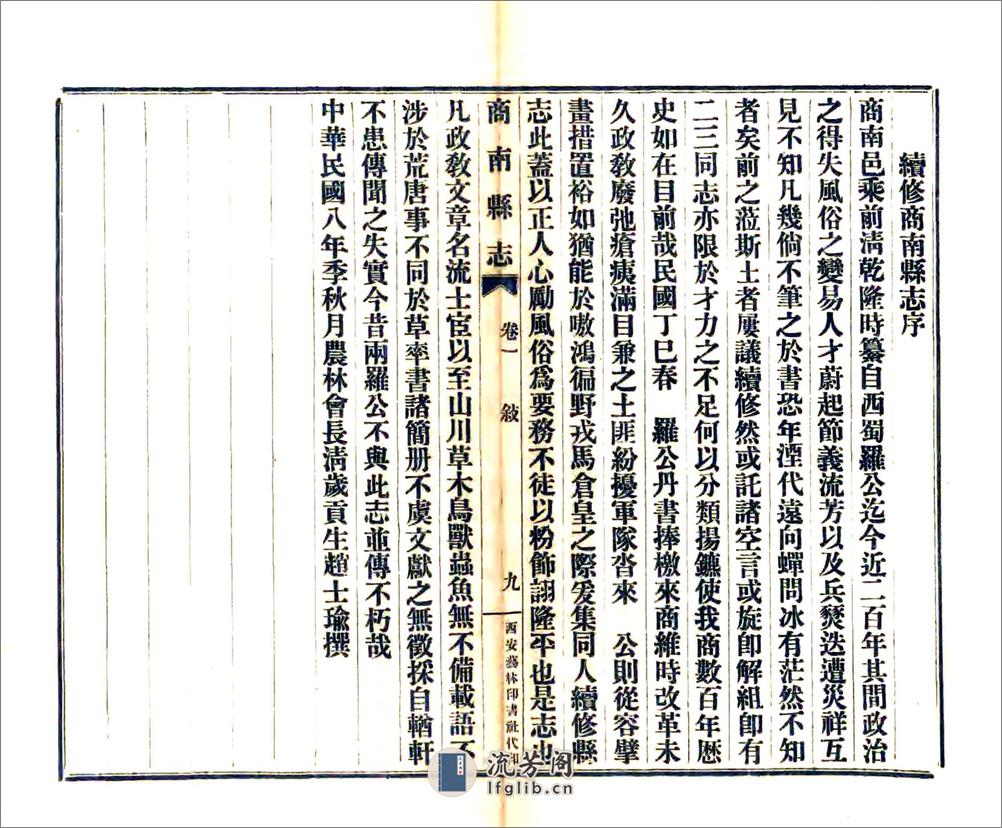 續修商南縣志序
商南邑乘前淸乾隆時纂自西蜀羅公迄今近二百年其間政治
之得失風俗之變易人才蔚起節義流芳以及兵燹迭遭災祥互
見不知凡幾倘不筆之於書恐年湮代遠向蟬問冰有茫然不知
者矣前之蒞斯土者屢議續修然或託諸空言或旋卽解組卽有
二三同志亦限於才力之不足何以分類揚鑣使我商數百年歷
史如在目前哉民國丁巳春　羅公丹書捧檄來商維時改革未
久政敎廢弛瘡痍滿目兼之土匪紛擾軍隊沓來　公則從容擘
畫措置裕如猶能於嗷鴻徧野戎馬倉皇之際爰集同人續修縣
志此蓋以正人心勵風俗爲要務不徒以粉飾詡隆平也是志也
商南縣志　卷一　敍　九　西安藝林印書社代印
凡政敎文章名流士宦以至山川草木鳥獸蟲魚無不備載語不
涉於荒唐事不同於草率書諸簡册不虞文獻之無徵採自輶軒
不患傳聞之失實今昔兩羅公不與此志並傳不朽哉
中華民國八年季秋月農林會長淸歲貢生趙士瑜撰
流芳阁
lfglib.cn